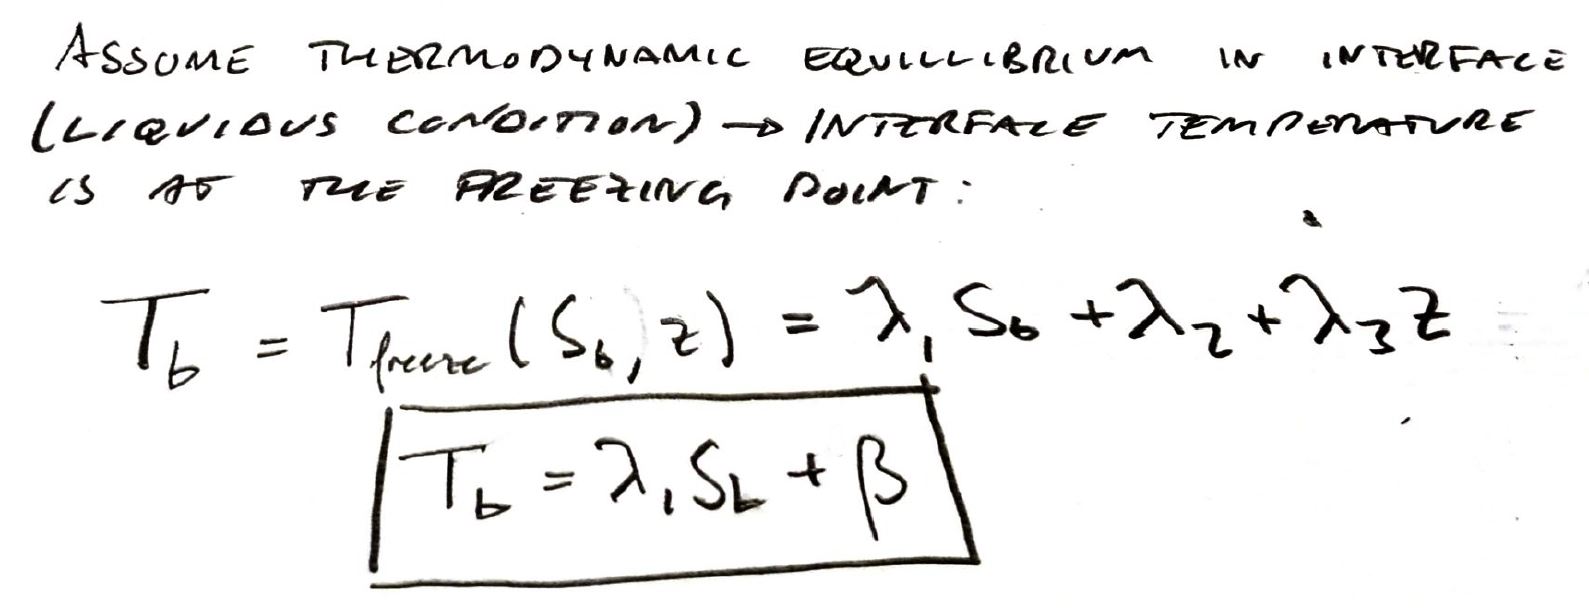 ASSUME THERMODYNAMIC EQUILLIBRIUM IN INTERFACE
(LIQUIDUS CONDITION) → INTERFACE TEMPERATURE
IS AT THE FREEZING POINT:
T_b = T_freeze (S_b, z) = λ_1 S_b + λ_2 + λ_3 z
T_b = λ_1 S_b + β